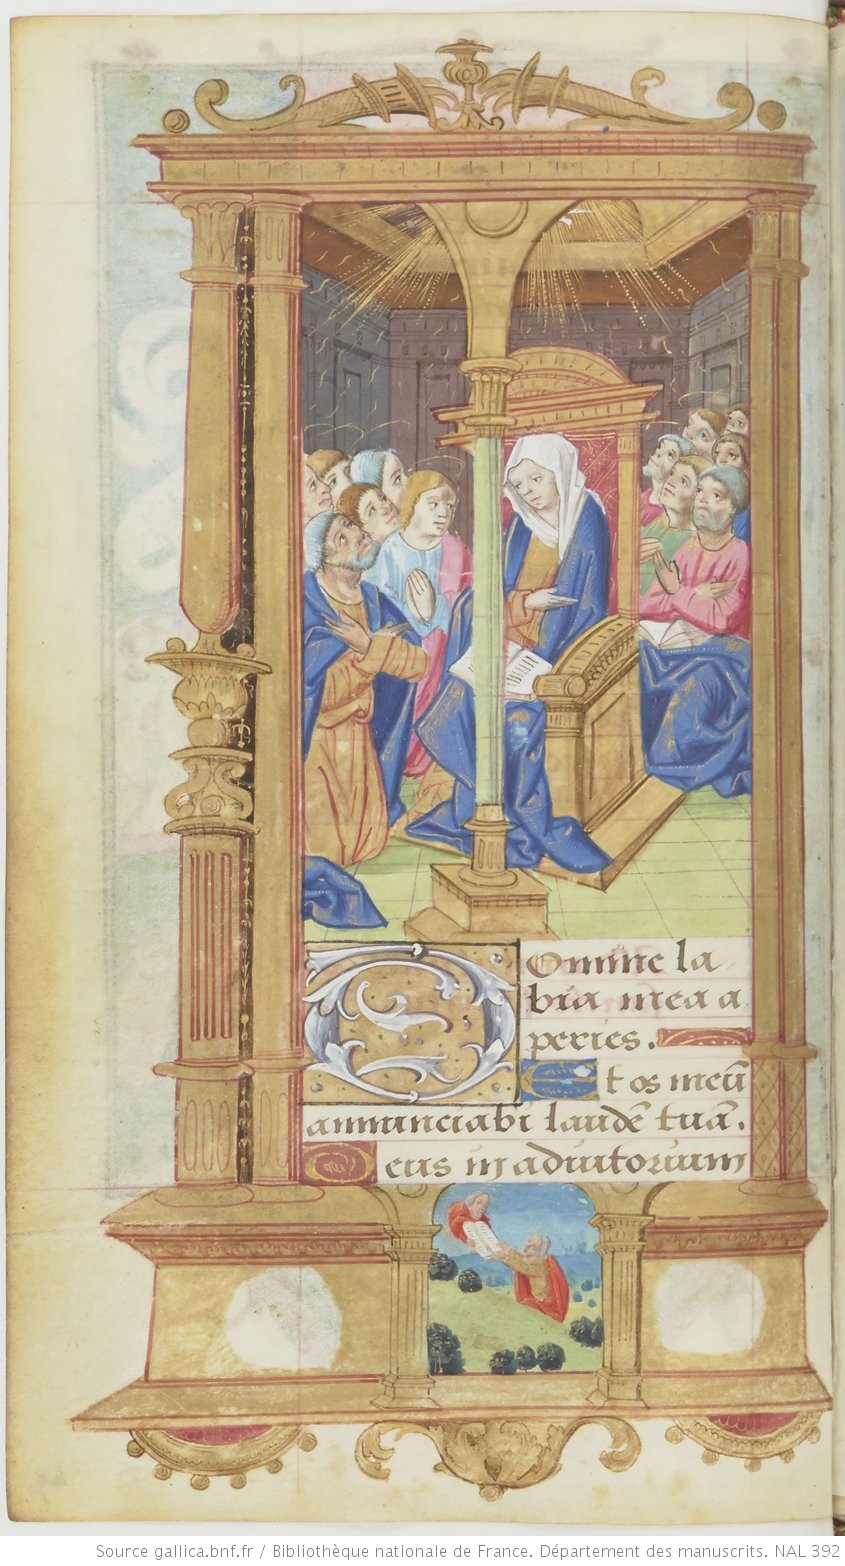 Omine la
bia mea a
peries.
Et os meū
annunciabi laudē tuā.
Deus in adiutorium
Source gallica.bnf.fr / Bibliothèque nationale de France. Département des manuscrits. NAL 392